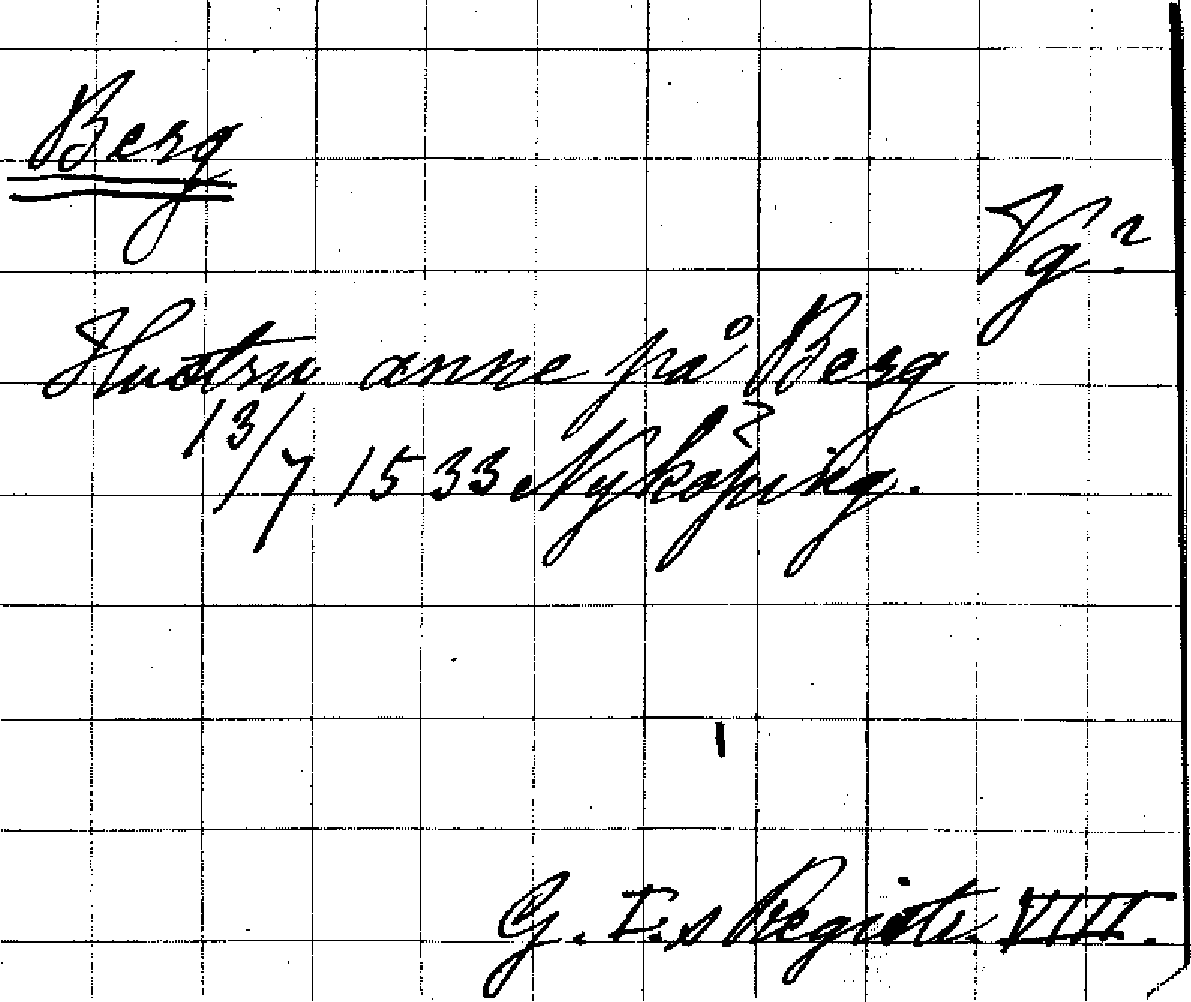 Berg
Vg?
Hustru anne på Berg
13/7 1533 Nyköping.
G. I:s Registr. VIII.